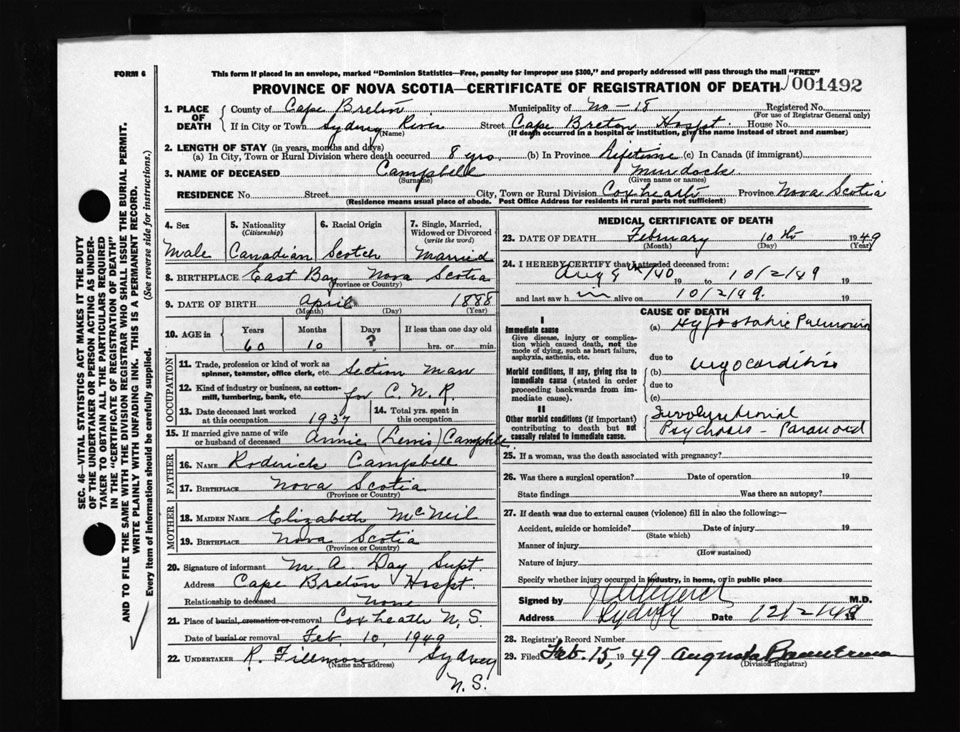 FORM 6
This form if placed in an envelope, marked "Dominion Statistics—Free, penalty for improper use $300," and properly addressed will pass through the mail "FREE"
PROVINCE OF NOVA SCOTIA—CERTIFICATE OF REGISTRATION OF DEATH
001492
SEC. 46—VITAL STATISTICS ACT MAKES IT THE DUTY
OF THE UNDERTAKER OR PERSON ACTING AS UNDER-
TAKER TO OBTAIN ALL THE PARTICULARS REQUIRED
IN THE "CERTIFICATE OF REGISTRATION OF DEATH"
AND TO FILE THE SAME WITH THE DIVISION REGISTRAR WHO SHALL ISSUE THE BURIAL PERMIT.
WRITE PLAINLY WITH UNFADING INK. THIS IS A PERMANENT RECORD.
Every item of information should be carefully supplied. (See reverse side for instructions.)
1. PLACE OF DEATH
County of Cape Breton Municipality of No-18 Registered No.
(For use of Registrar General only)
If in City or Town Sydney River Street Cape Breton Hospt. House No.
(Name) (If death occurred in a hospital or institution, give the name instead of street and number)
2. LENGTH OF STAY (in years, months and days)
(a) In City, Town or Rural Division where death occurred 8 yrs (b) In Province Lifetime (c) In Canada (if immigrant)
3. NAME OF DECEASED Campbell Murdock
(Surname) (Given name or names)
RESIDENCE No. Street City, Town or Rural Division Coxheath Province Nova Scotia
(Residence means usual place of abode. Post Office Address for residents in rural parts not sufficient)
4. Sex
Male
5. Nationality
(Citizenship)
Canadian
6. Racial Origin
Scotch
7. Single, Married,
Widowed or Divorced
(write the word)
Married
8. BIRTHPLACE East Bay Nova Scotia
(Province or Country)
9. DATE OF BIRTH April 1888
(Month) (Day) (Year)
10. AGE in Years Months Days If less than one day old
60 10 ? hrs. or min.
OCCUPATION
11. Trade, profession or kind of work as
spinner, teamster, office clerk, etc. Section Man
12. Kind of industry or business, as cotton-
mill, lumbering, bank, etc. for C.N.R.
13. Date deceased last worked
at this occupation 1937
14. Total yrs. spent in
this occupation
15. If married give name of wife
or husband of deceased Annie Campbell
FATHER
16. NAME Roderick Campbell
17. BIRTHPLACE Nova Scotia
(Province or Country)
MOTHER
18. MAIDEN NAME Elizabeth McNeil
19. BIRTHPLACE Nova Scotia
(Province or Country)
20. Signature of informant M. A. Day Supt.
Address Cape Breton Hospt.
Relationship to deceased None
21. Place of burial, cremation or removal Coxheath N.S.
Date of burial or removal Feb 10, 1949
22. UNDERTAKER R. Fillmore Sydney
(Name and address)
N.S.
MEDICAL CERTIFICATE OF DEATH
23. DATE OF DEATH February 10th 1949
(Month) (Day) (Year)
24. I HEREBY CERTIFY that I attended deceased from:
Aug 9th/40 19 to 10/2/49 19
and last saw h im alive on 10/2/49. 19
I
Immediate cause
Give disease, injury or complica-
tion which caused death, not the
mode of dying, such as heart failure,
asphyxia, asthenia, etc.
Morbid conditions, if any, giving rise to
immediate cause (stated in order
proceeding backwards from im-
mediate cause).
II
Other morbid conditions (if important)
contributing to death but not
causally related to immediate cause.
CAUSE OF DEATH
(a) Hypostatic Pneumonia
due to
(b) Myocarditis
due to
(c)
Involutional
Psychosis - Paranoid
25. If a woman, was the death associated with pregnancy?
26. Was there a surgical operation? Date of operation 19
State findings Was there an autopsy?
27. If death was due to external causes (violence) fill in also the following:—
Accident, suicide or homicide? Date of injury 19
(State which)
Manner of injury
(How sustained)
Nature of injury
Specify whether injury occurred in industry, in home, or in public place
Signed by M.D.
Address Sydney Date 12/2/49 19
28. Registrar's Record Number
29. Filed Feb. 15, 1949 Augusta
(Division Registrar)